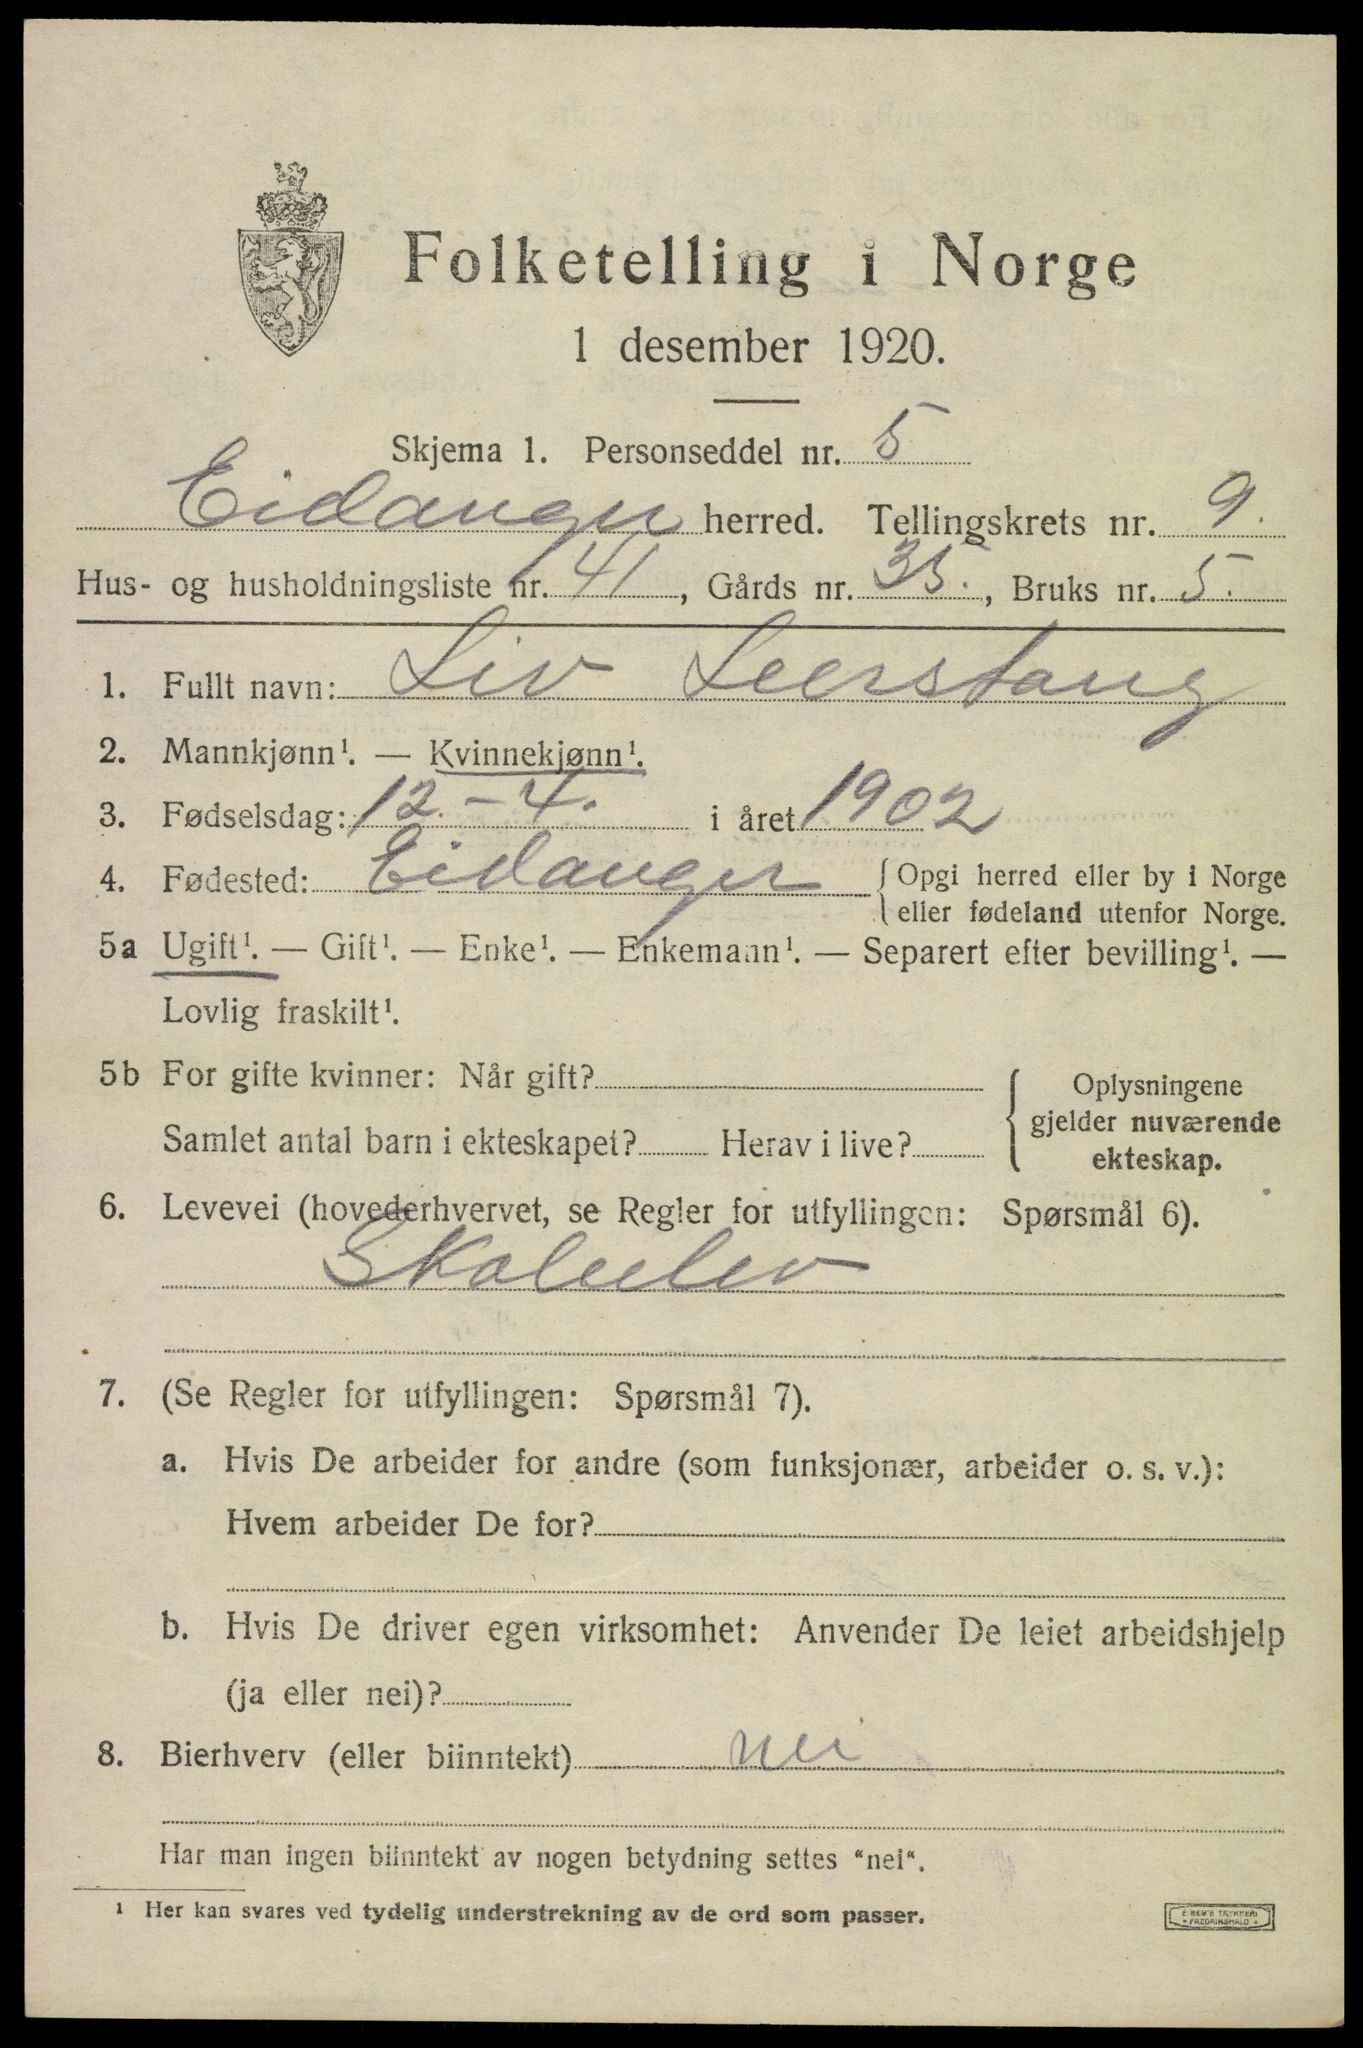 Folketelling i Norge
1 desember 1920.
Skjema 1. Personseddel nr. 5
Eidanger herred. Tellingskrets nr. 9.
Hus- og husholdningsliste nr. 41, Gårds nr. 35., Bruks nr. 5.
1. Fullt navn: Liv Leerstang
2. Mannkjønn¹. — Kvinnekjønn¹.
3. Fødselsdag: 12. - 4. i året 1902
4. Fødested: Eidanger { Opgi herred eller by i Norge
eller fødeland utenfor Norge.
5a Ugift¹. — Gift¹. — Enke¹. — Enkemann¹. — Separert efter bevilling¹. —
Lovlig fraskilt¹.
5b For gifte kvinner: Når gift?
Samlet antal barn i ekteskapet? Herav i live?
{ Oplysningene
gjelder nuværende
ekteskap.
6. Levevei (hovederhvervet, se Regler for utfyllingen: Spørsmål 6).
Skoleelev
7. (Se Regler for utfyllingen: Spørsmål 7).
a. Hvis De arbeider for andre (som funksjonær, arbeider o. s. v.):
Hvem arbeider De for?
b. Hvis De driver egen virksomhet: Anvender De leiet arbeidshjelp
(ja eller nei)?
8. Bierhverv (eller biinntekt) nei
Har man ingen biinntekt av nogen betydning settes "nei".
¹ Her kan svares ved tydelig understrekning av de ord som passer.
E. SEM'S TRYKKERI
* FREDRIKSHALD *